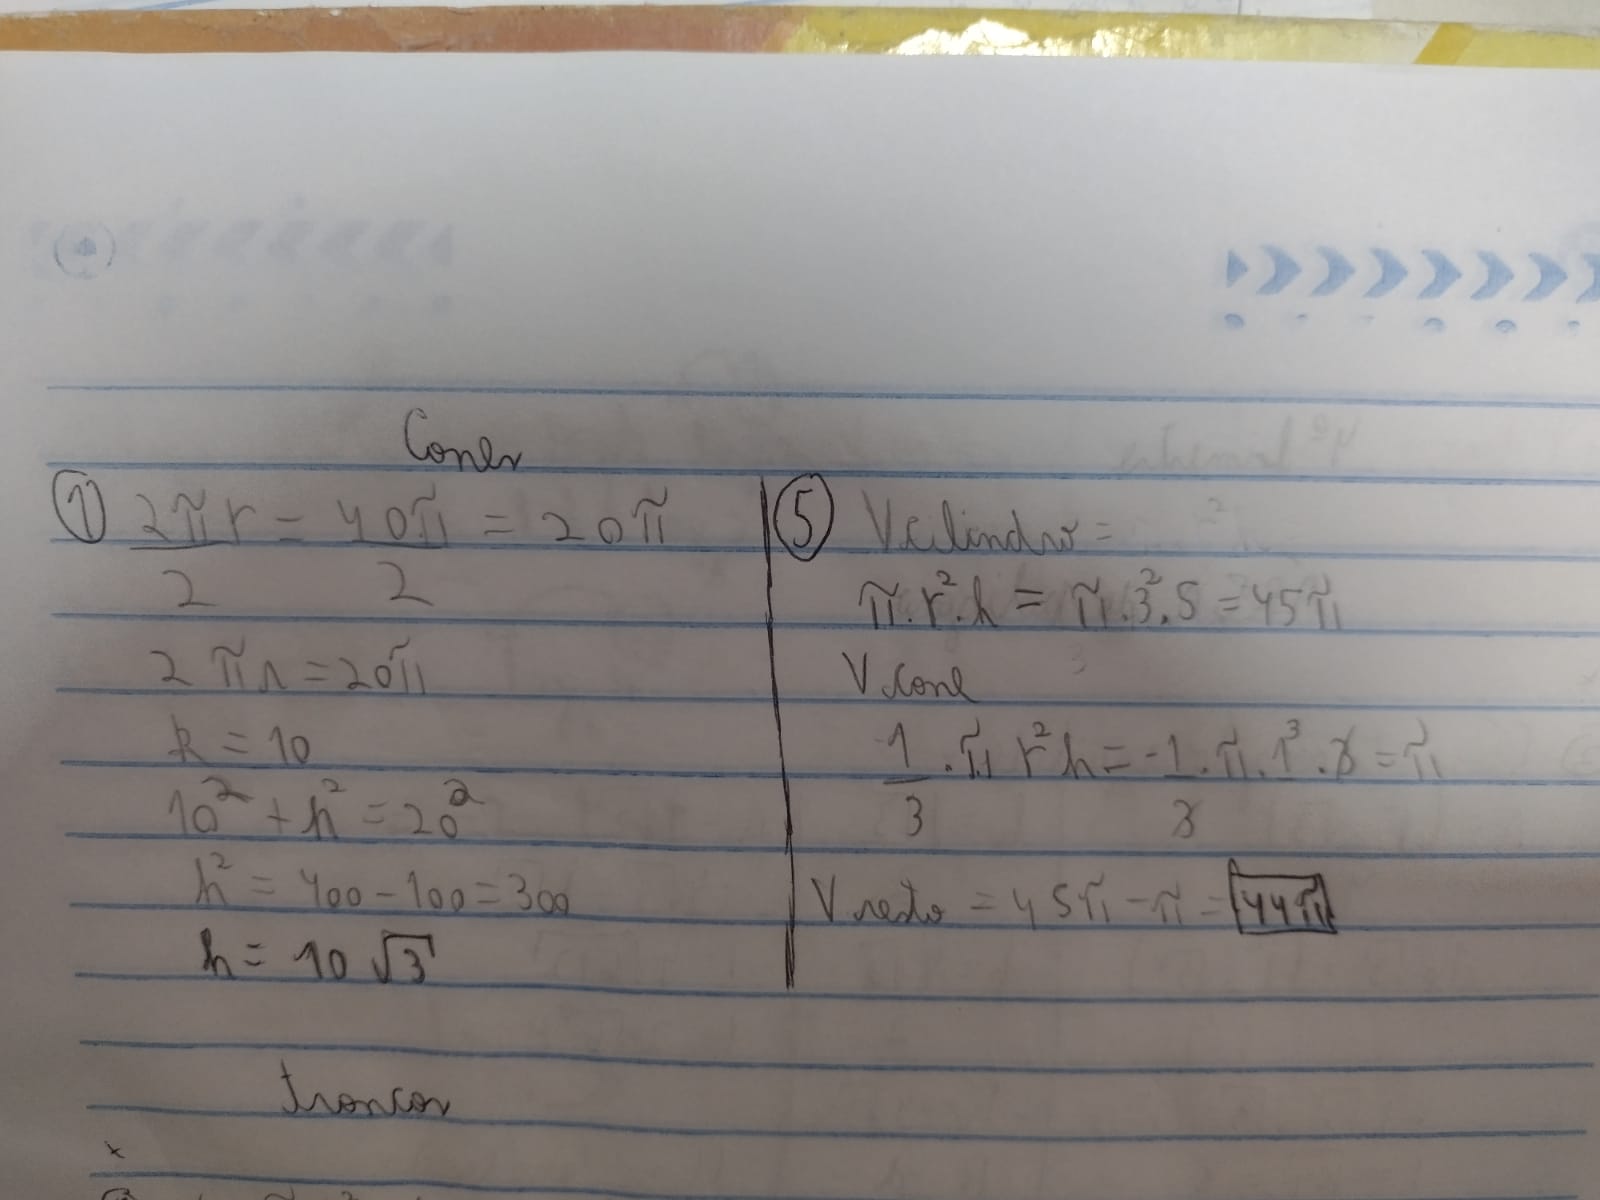 Cones
① 2πr/2 = 40π/2 = 20π
2πr = 20π
R = 10
10² + h² = 20²
h² = 400 - 100 = 300
h = 10√3
⑤ Vcilindro =
π.r².h = π.3².5 = 45π
V cone
1/3 .π r² h = 1/3 .π.1³.3 = π
V resto = 45π - π = 44π
troncos
x